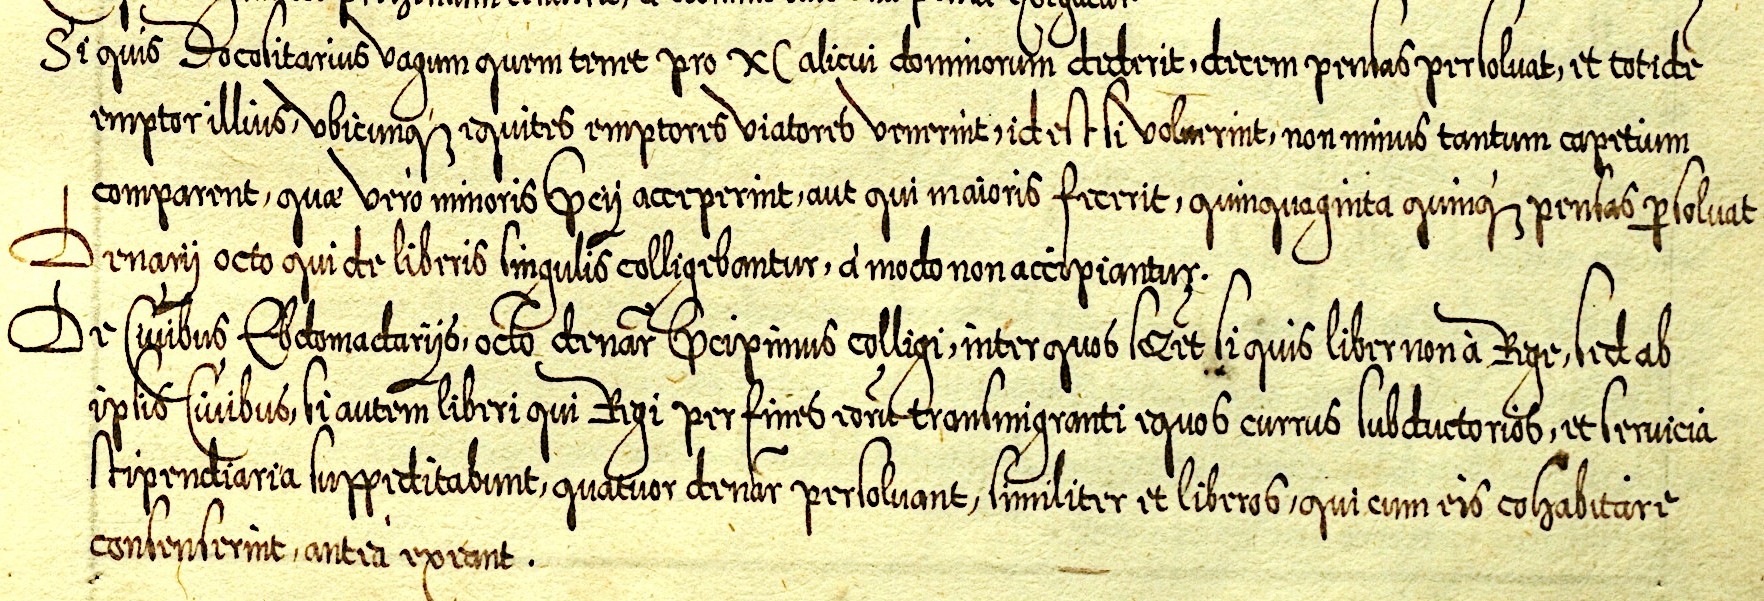 Si quis Docolitarius vagum quem tenet pro XC alicui dominorum dederit, decem pensas persoluat, et totidē
emptor illius, vbicunq₃ equites emptores viatores venerint, id est si voluerint, non minus tantum capetium
comparent, quæ vero minoris p̄cij acceperint, aut qui maioris fecerit, quinquaginta quinq₃ pensas ꝑsoluat
Denarij octo qui de liberis singulis colligebantur, á modo non accipiantur.
De Ciuibus Ebdomadarijs, octo denar̄ p̄cipimus colligi, inter quos si quis liber non à Rege, sed ab
ipsis Ciuibus, si autem liberi qui Regi per fines eorū transmigranti equos currus subductorios, et seruicia
stipendiaria suppeditabunt, quatuor denar̄ persoluant, similiter et liberos, qui cum eis cohabitare
consenserint, anteá exeant.